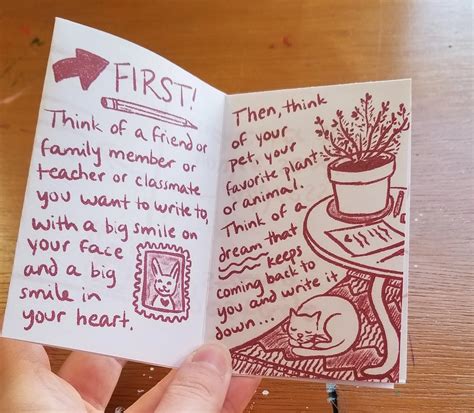 FIRST!
Think of a friend or
family member or
teacher or classmate
you want to write to,
with a big smile on
your face
and a big
smile in
your heart.
Then, think
of your
pet, your
favorite plant
or animal.
Think of a
dream that
keeps
coming back to
you and write it
down...